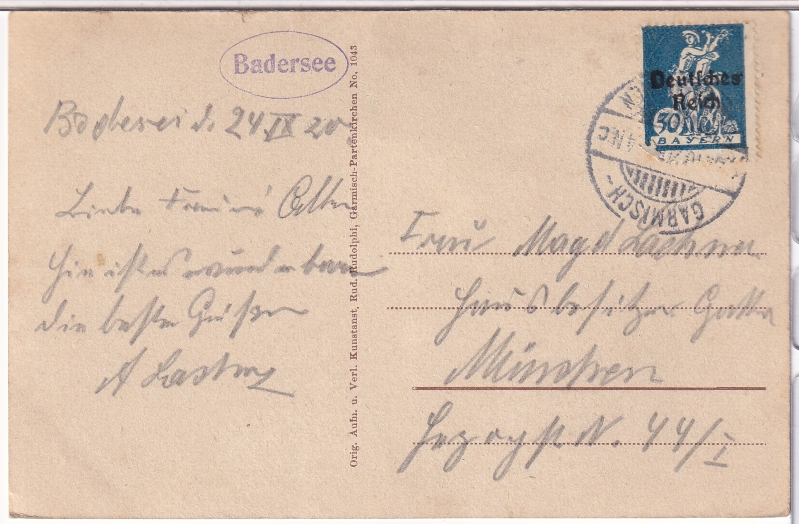 Badersee
Badersee d. 24 IX 20
Liebe
hier ist es wunderbar
die besten Grüße
A
Orig. Aufn. u. Verl. Kunstanst. Rud. Rudolphi, Garmisch-Partenkirchen No. 1043
Deutsches
Reich
50
BAYERN
GARMISCH-
Frau Magd Lachner
Hausbesitzers Gattin
München
Herzogstr. N. 44/I